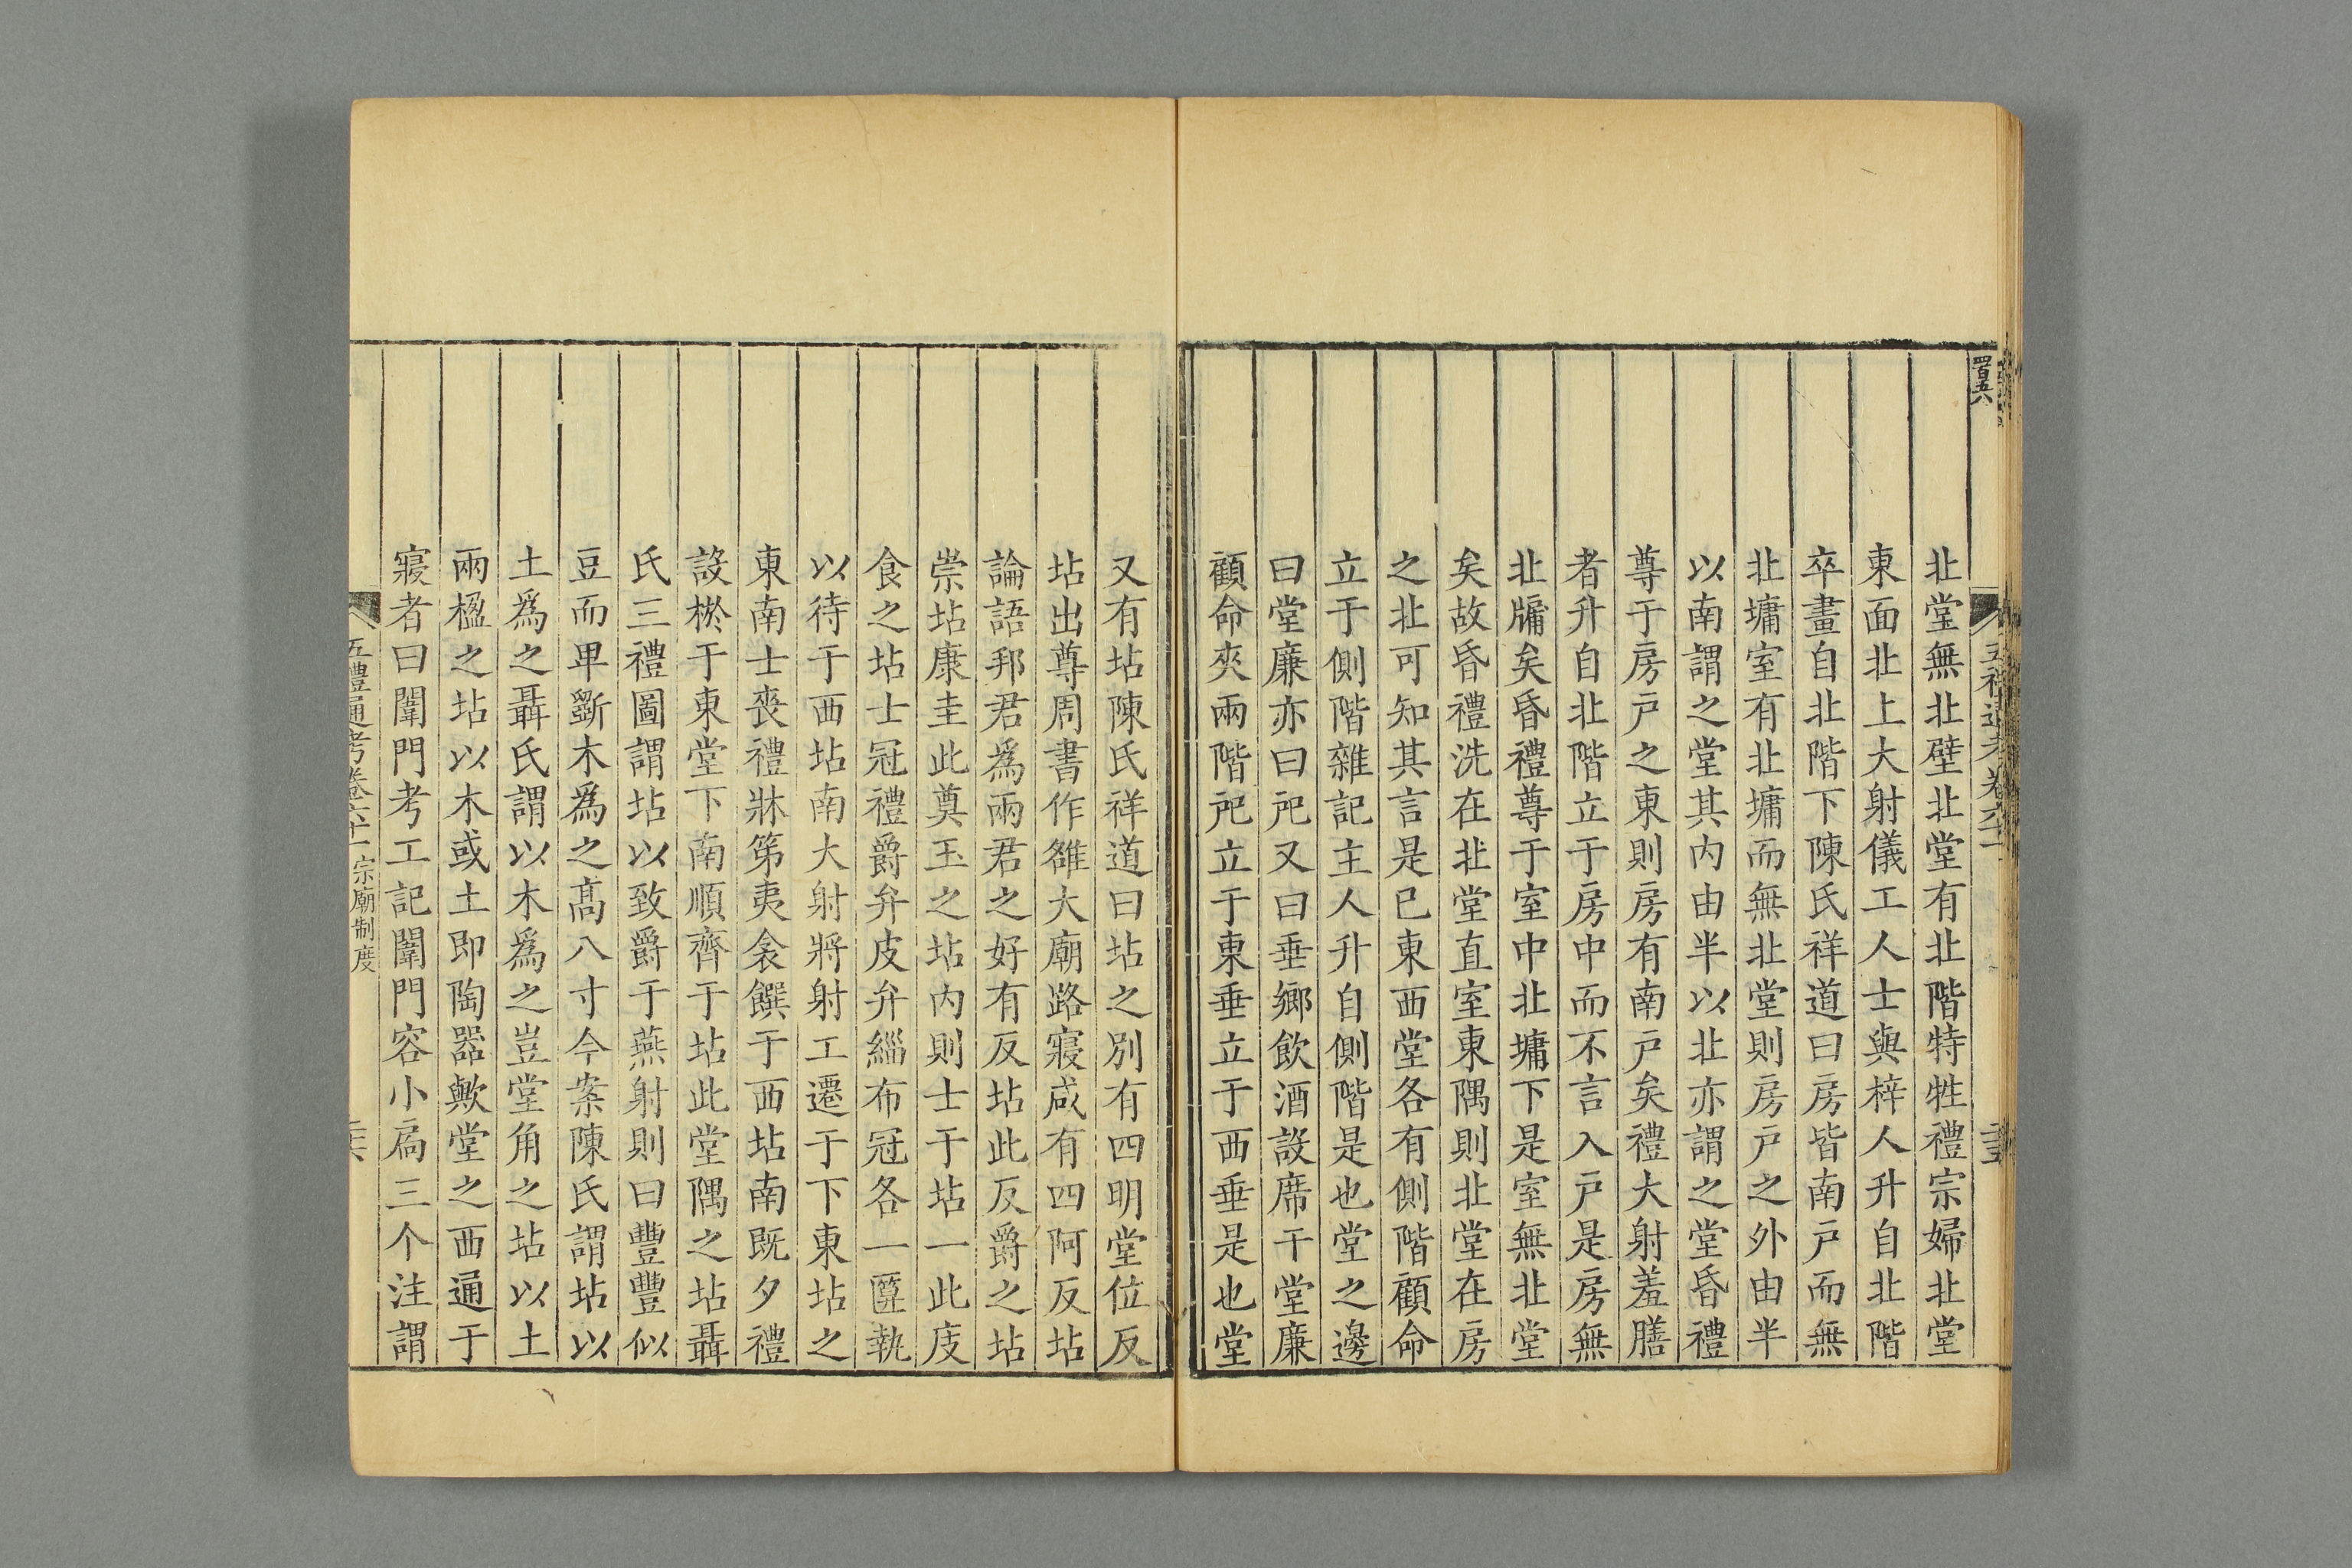 北堂無北壁北堂有北階特牲禮宗婦北堂
東面北上大射儀工人士與梓人升自北階
卒畫自北階下陳氏祥道曰房皆南戸而無
北墉室有北墉而無北堂則房戸之外由半
以南謂之堂其内由半以北亦謂之堂昏禮
尊于房戸之東則房有南戸矣禮大射羞膳
者升自北階立于房中而不言入戸是房無
北牖矣昏禮尊于室中北墉下是室無北堂
矣故昏禮洗在北堂直室東隅則北堂在房
之北可知其言是已東西堂各有側階顧命
立于側階雜記主人升自側階是也堂之邊
曰堂廉亦曰戺又曰垂鄉飲酒設席于堂廉
顧命夾兩階戺立于東垂立于西垂是也堂
又有坫陳氏祥道曰坫之別有四明堂位反
坫出尊周書作雒大廟路寢咸有四阿反坫
論語邦君爲兩君之好有反坫此反爵之坫
崇坫康圭此奠玉之坫内則士于坫一此庋
食之坫士冠禮爵弁皮弁緇布冠各一匴執
以待于西坫南大射將射工遷于下東坫之
東南士喪禮牀笫夷衾饌于西坫南既夕禮
設棜于東堂下南順齊于坫此堂隅之坫聶
氏三禮圖謂坫以致爵于燕射則曰豐豐似
豆而卑斵木爲之高八寸今案陳氏謂坫以
土爲之聶氏謂以木爲之豈堂角之坫以土
兩楹之坫以木或土即陶器歟堂之西通于
寢者曰闈門考工記闈門容小扃三个注謂
五禮通考卷六十一 宗廟制度